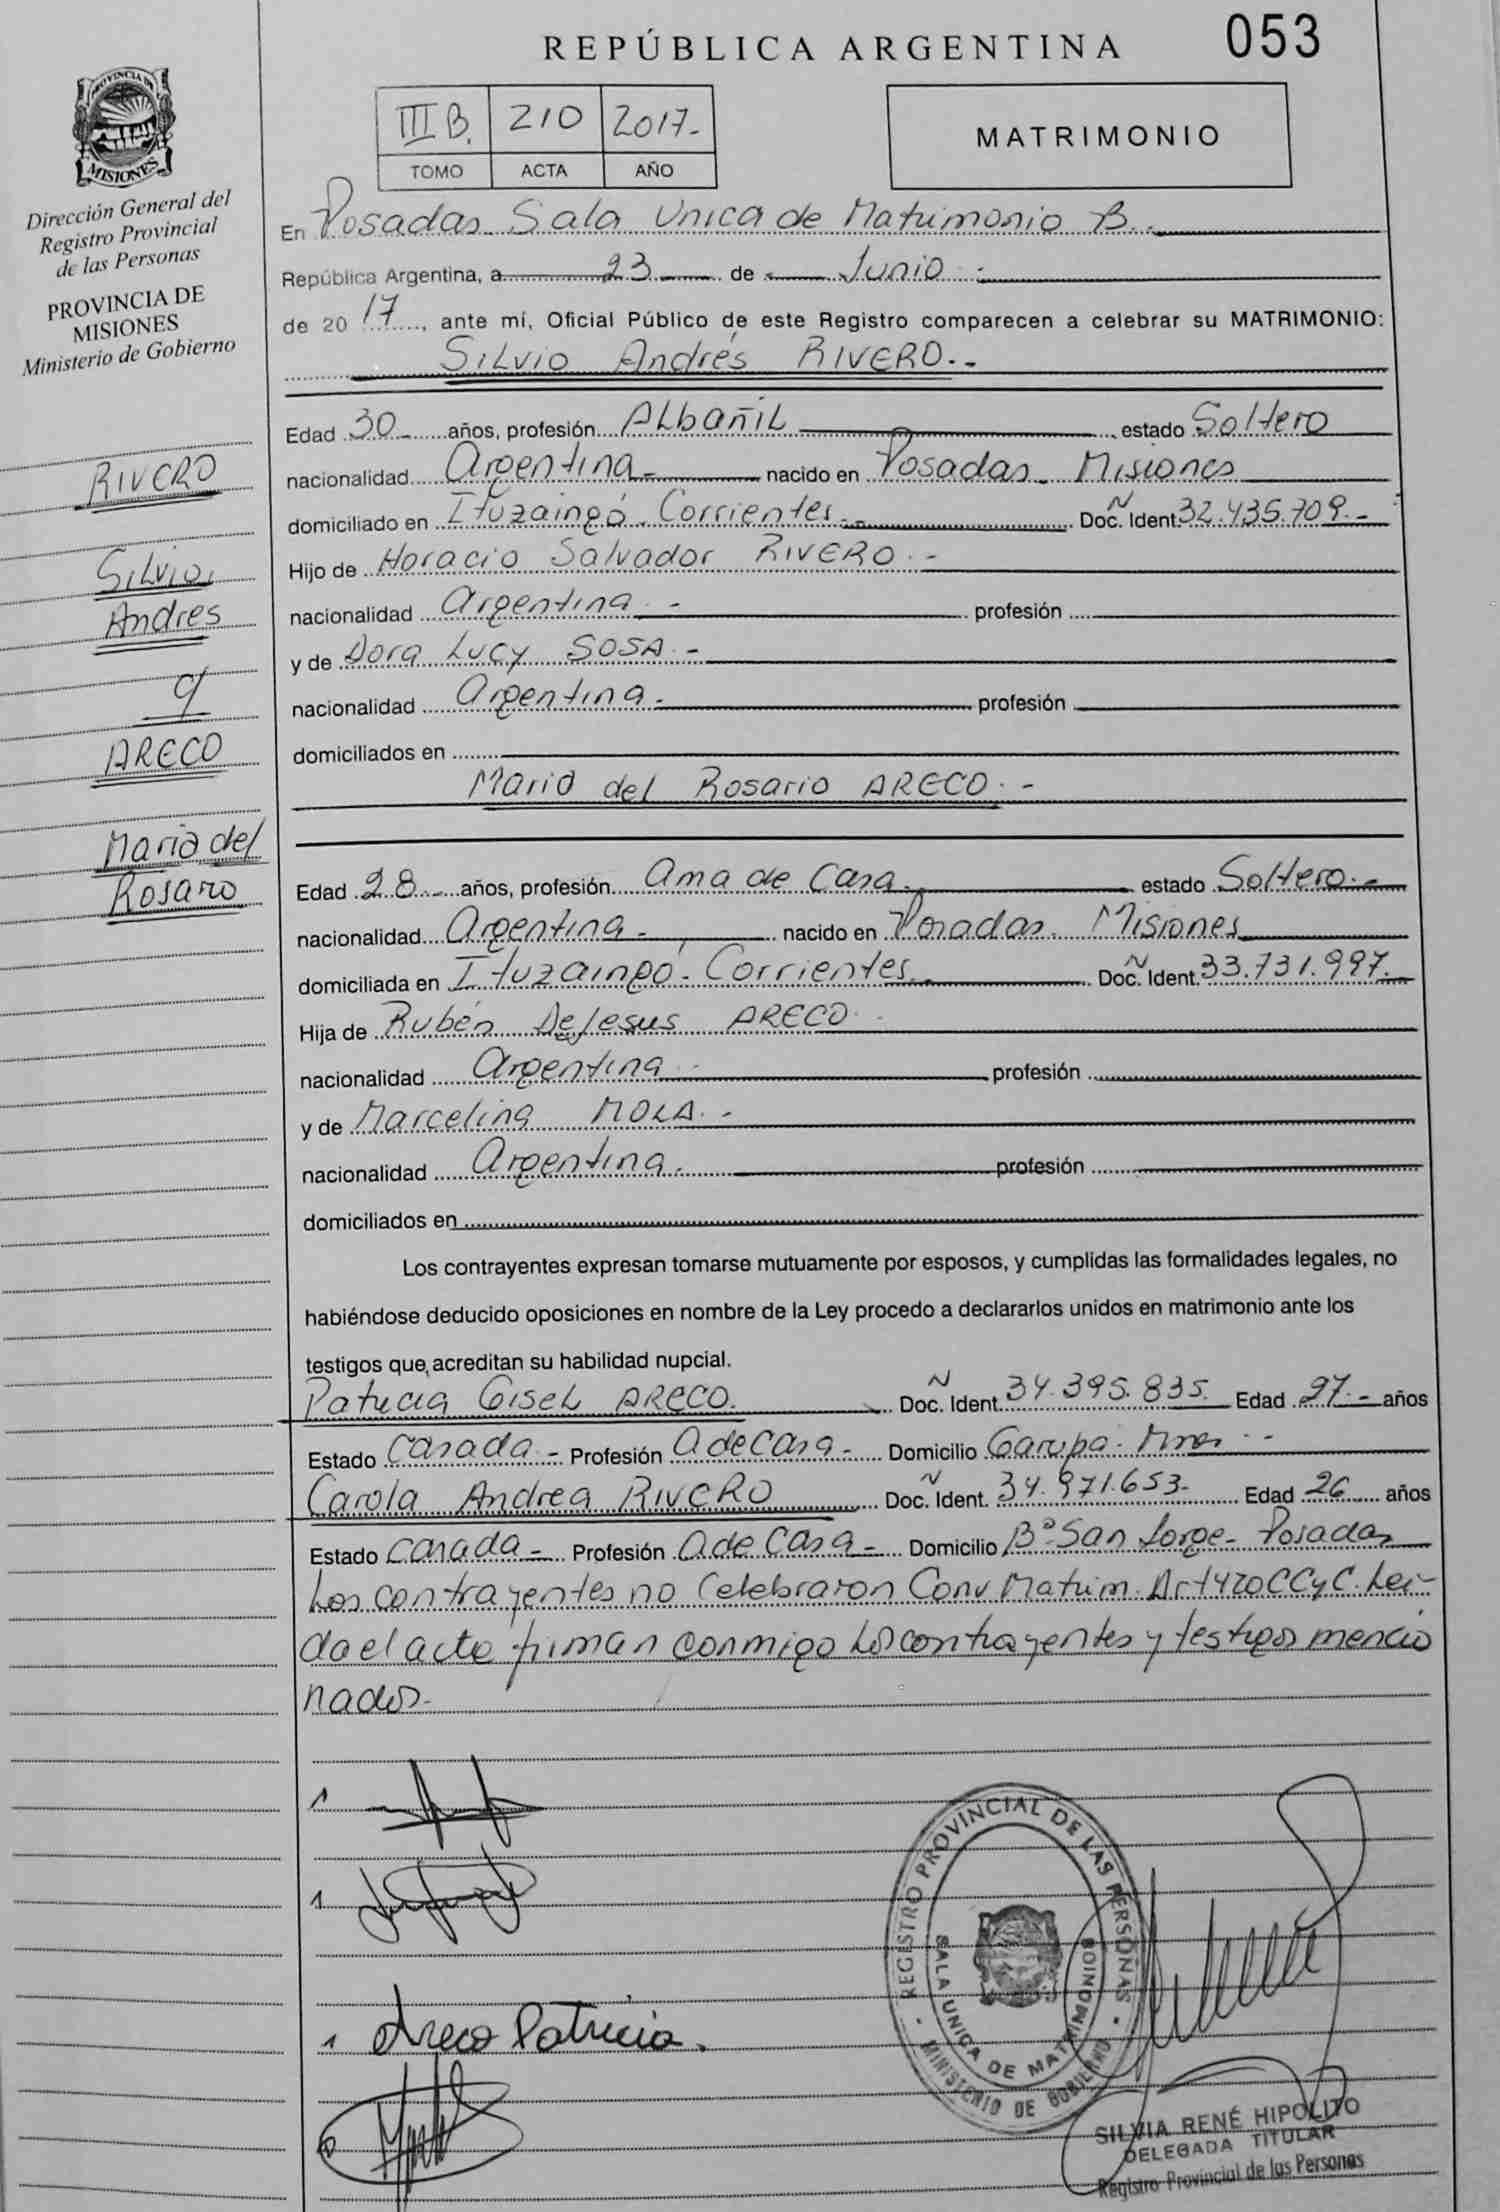 053
REPÚBLICA ARGENTINA
III B. 210 2017.-
TOMO ACTA AÑO
MATRIMONIO
PROVINCIA DE
MISIONES
Dirección General del
Registro Provincial
de las Personas
PROVINCIA DE
MISIONES
Ministerio de Gobierno
RIVERO
Silvio,
Andres
y
ARECO
Maria del
Rosaro
En Posadas Sala Unica de Matrimonio B.-
República Argentina, a 23 de Junio.-
de 2017, ante mí, Oficial Público de este Registro comparecen a celebrar su MATRIMONIO:
Silvio Andrés RIVERO.-
Edad 30 años, profesión ALbañiL estado Soltero
nacionalidad Argentina.- nacido en Posadas. Misiones
domiciliado en Ituzaingó. Corrientes.- Doc. Ident. N 32.435.709.-
Hijo de Horacio Salvador RIVERO.-
nacionalidad Argentina.- profesión
y de Dora Lucy SOSA.-
nacionalidad Argentina.- profesión
domiciliados en
Maria del Rosario ARECO.-
Edad 28 años, profesión Ama de Casa. estado Soltero.-
nacionalidad Argentina.- nacido en Posadas. Misiones
domiciliada en Ituzaingó. Corrientes. Doc. Ident. N 33.731.997.
Hija de Rubén DeJesus ARECO.
nacionalidad Argentina.- profesión
y de Marcelina MOLA.-
nacionalidad Argentina. profesión
domiciliados en
Los contrayentes expresan tomarse mutuamente por esposos, y cumplidas las formalidades legales, no
habiéndose deducido oposiciones en nombre de la Ley procedo a declararlos unidos en matrimonio ante los
testigos que acreditan su habilidad nupcial.
Patricia GiseL ARECO. Doc. Ident. N 34.395.835. Edad 27.- años
Estado Casada.- Profesión A de Casa.- Domicilio Garupa. Mnes.-
Carola Andrea RIVERO Doc. Ident. N 34.971.653.- Edad 26 años
Estado Casada.- Profesión A de Casa.- Domicilio B° San Jorge- Posadas
Los contrayentes no Celebraron Conv Matrim. Art 420 CCyC. Lei-
da el acto firman conmigo los contrayentes y testigos mencio
nados.-
1
1
1 Areco Patricia.
REGISTRO PROVINCIAL DE LAS PERSONAS
SALA UNICA DE MATRIMONIOS
MINISTERIO DE GOBIERNO
SILVIA RENÉ HIPOLITO
DELEGADA TITULAR
Registro Provincial de las Personas